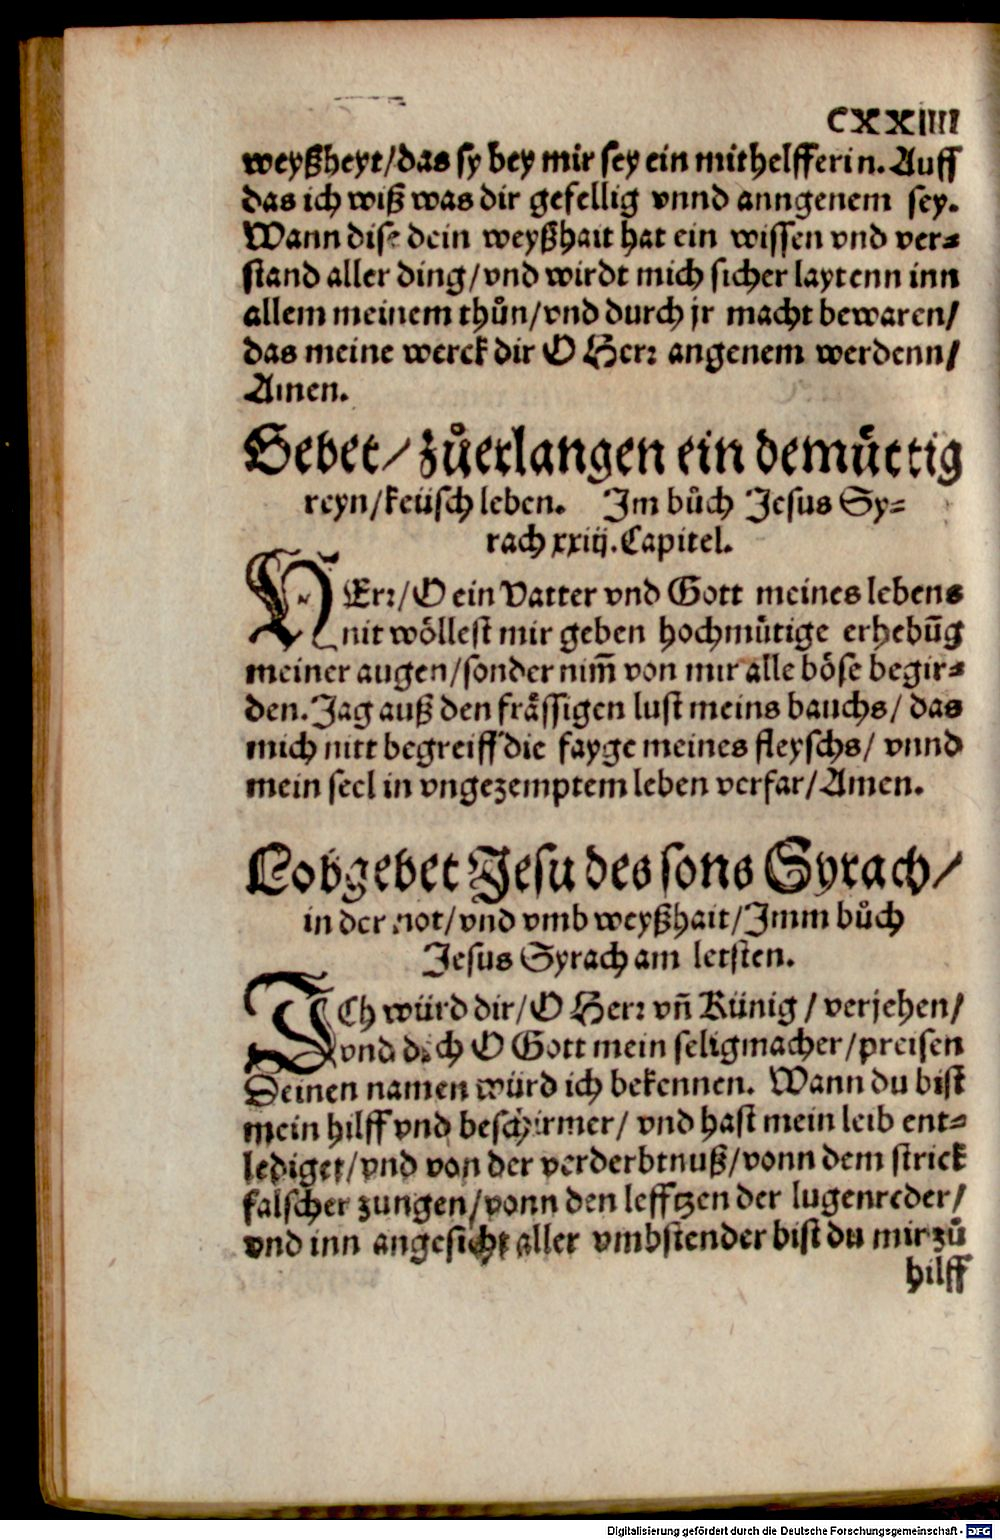 CXXIIII
weyßheyt/das sy bey mir sey ein mithelfferin. Auff
das ich wiß was dir gefellig vnnd anngenem sey.
Wann dise dein weyßhait hat ein wissen vnd ver⸗
stand aller ding/vnd wirdt mich sicher laytenn inn
allem meinem thůn/vnd durch jr macht bewaren/
das meine werck dir O Herr angenem werdenn/
Amen.
Gebet/ zůerlangen ein demuͤttig
reyn/keüsch leben. Im bůch Jesus Sy⸗
rach xxiij. Capitel.
HErr/O ein Vatter vnd Gott meines lebens
nit woͤllest mir geben hochmuͤtige erhebūg
meiner augen/sonder nim̄ von mir alle boͤse begir⸗
den. Jag auß den fraͤssigen lust meins bauchs/ das
mich nitt begreiff die fayge meines fleyschs/ vnnd
mein seel in vngezemptem leben verfar/Amen.
Lobgebet Jesu des sons Syrach/
in der not/vnd vmb weyßhait/Imm bůch
Jesus Syrach am letsten.
ICh würd dir/O Herr vn̄ Künig / verjehen/
vnd dich O Gott mein seligmacher/preisen
Deinen namen würd ich bekennen. Wann du bist
mein hilff vnd beschirmer/ vnd hast mein leib ent⸗
lediget/vnd von der verderbtnuß/vonn dem strick
falscher zungen/vonn den lefftzen der lugenreder/
vnd inn angesicht aller vmbstender bist du mir zů
hilff
Digitalisierung gefördert durch die Deutsche Forschungsgemeinschaft - DFG